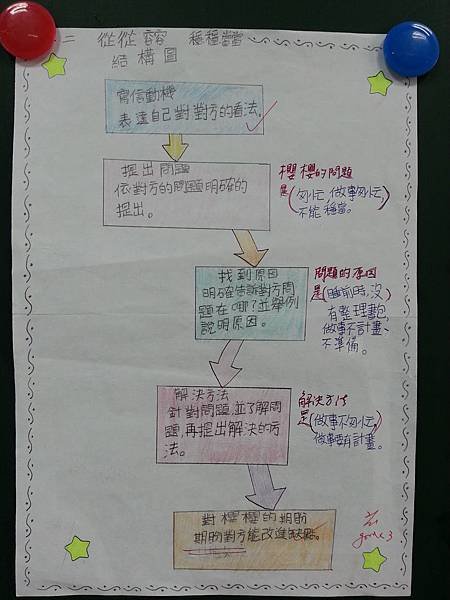 二 從從容容 穩穩當當
結構圖
寫信動機
表達自己對對方的看法。
提出問題
依對方的問題明確的
提出。
櫻櫻的問題
是(匆忙 做事匆忙,
不能穩當。)
找到原因
明確告訴對方問
題在哪?並舉例
說明原因。
問題的原因
是(睡前時,沒
有整理書包,
做事不計畫、
不準備。)
解決方法
針對問題,並了解問
題,再提出解決的方
法。
解決方法
是(做事不匆忙,
做事要有計畫。)
對櫻櫻的期盼
期盼對方能改進缺點。